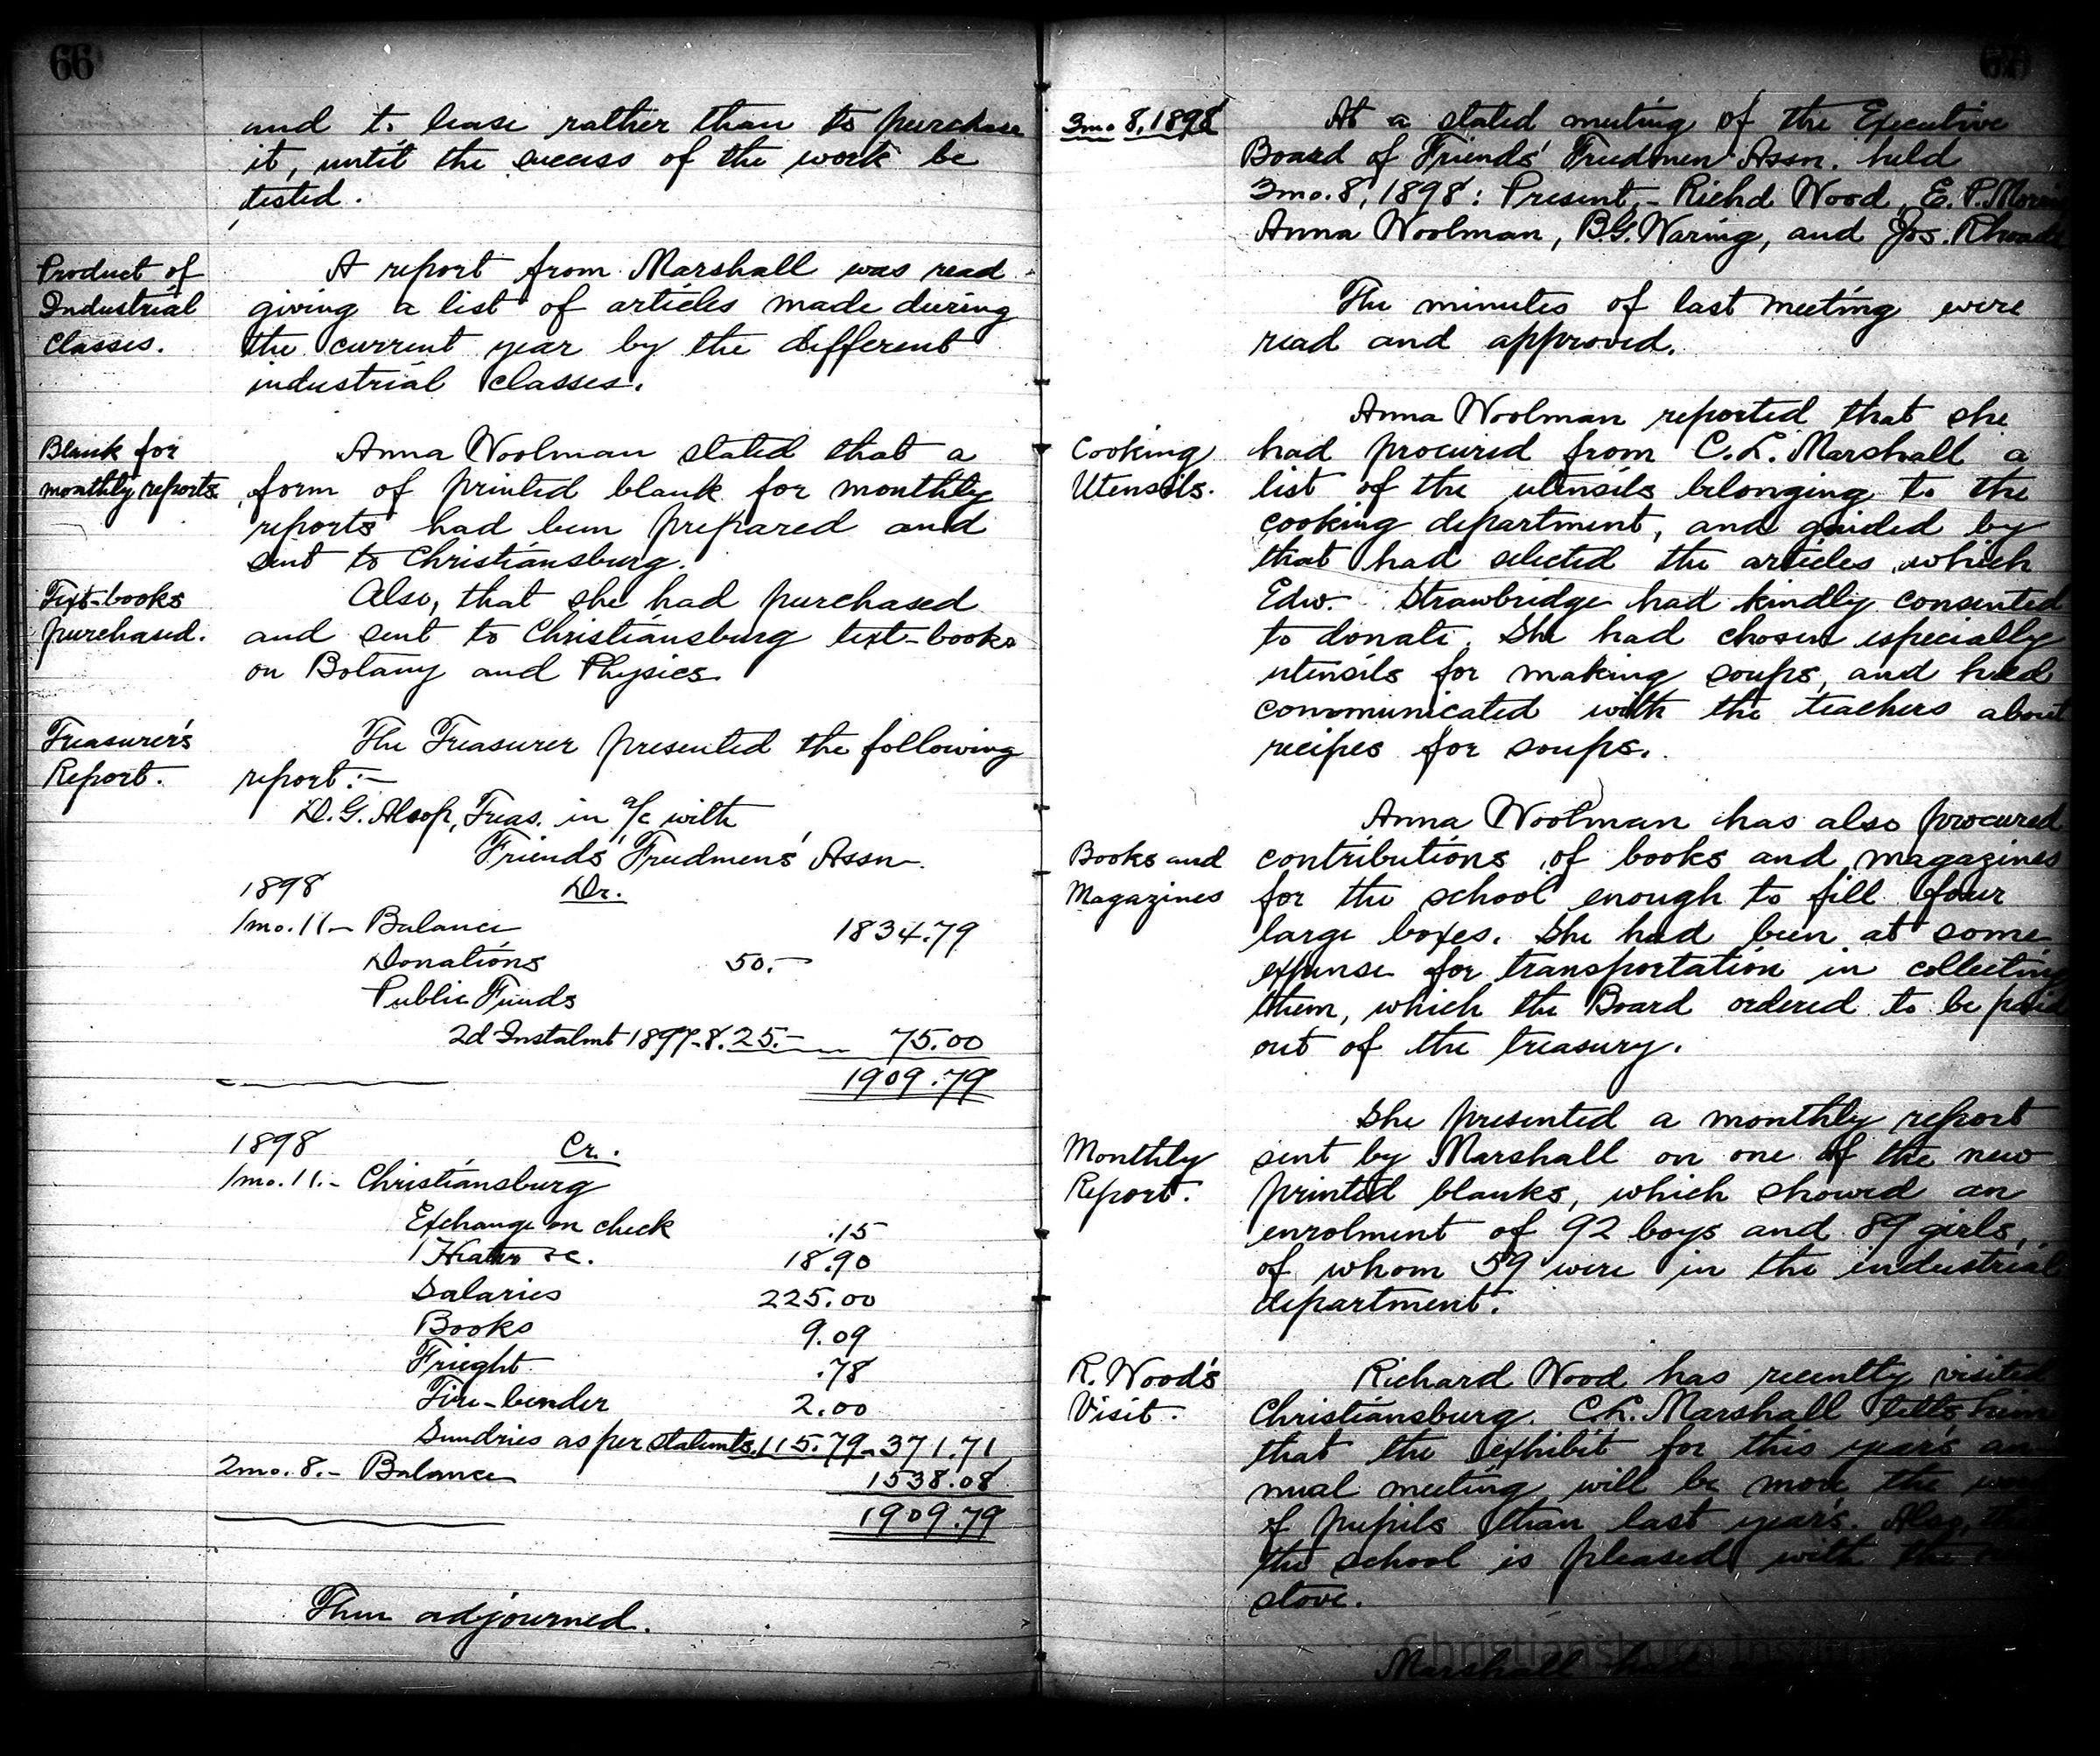 66
and to lease rather than to purchase
it, until the success of the work be
tested.
Product of
Industrial
Classes.
A report from Marshall was read
giving a list of articles made during
the current year by the different
industrial classes.
Blank for
monthly reports
Anna Woolman stated that a
form of printed blank for monthly
reports had been prepared and
sent to Christiansburg.
Text-books
purchased.
Also, that she had purchased
and sent to Christiansburg text-books
on Botany and Physics.
Treasurer's
Report.
The Treasurer presented the following
report:-
D. G. Alsop, Treas. in a/c with
Friends' Freedmens' Assn.
1898 Dr.
1mo. 11.- Balance 1834.79
Donations 50.-
Public Funds
2d Instalmt 1897-8. 25.- 75.00
1909.79
1898 Cr.
1mo. 11.- Christiansburg
Exchange on check .15
1 Heater &c. 18.90
Salaries 225.00
Books 9.09
Frieght .78
Fire-bender 2.00
Sundries as per statemts. 115.79 - 371.71
2mo. 8.- Balance 1538.08
1909.79
Then adjourned.
3mo. 8, 1898
At a stated meeting of the Executive
Board of Friends' Freedmen Assn. held
3mo. 8, 1898: Present,- Richd Wood, E. P. Morris
Anna Woolman, B.G. Waring, and Jos. Rhoads
The minutes of last meeting were
read and approved.
Cooking
Utensils.
Anna Woolman reported that she
had procured from C. L. Marshall a
list of the utensils belonging to the
cooking department, and guided by
that had selected the articles which
Edw. Strawbridge had kindly consented
to donate. She had chosen especially
utensils for making soups, and had
communicated with the teachers about
recipes for soups.
Books and
Magazines
Anna Woolman has also procured
contributions of books and magazines
for the school enough to fill four
large boxes. She had been at some
expense for transportation in collecting
them, which the Board ordered to be paid
out of the treasury.
Monthly
Report.
She presented a monthly report
sent by Marshall on one of the new
printed blanks, which showed an
enrolment of 92 boys and 89 girls,
of whom 59 were in the industrial
department.
R. Wood's
Visit.
Richard Wood has recently visited
Christiansburg. C.L. Marshall tells him
that the exhibit for this year's an-
nual meeting will be more the work
of pupils than last year's. Also, that
the school is pleased with the
stove.
Christiansburg Institute
Marshall had